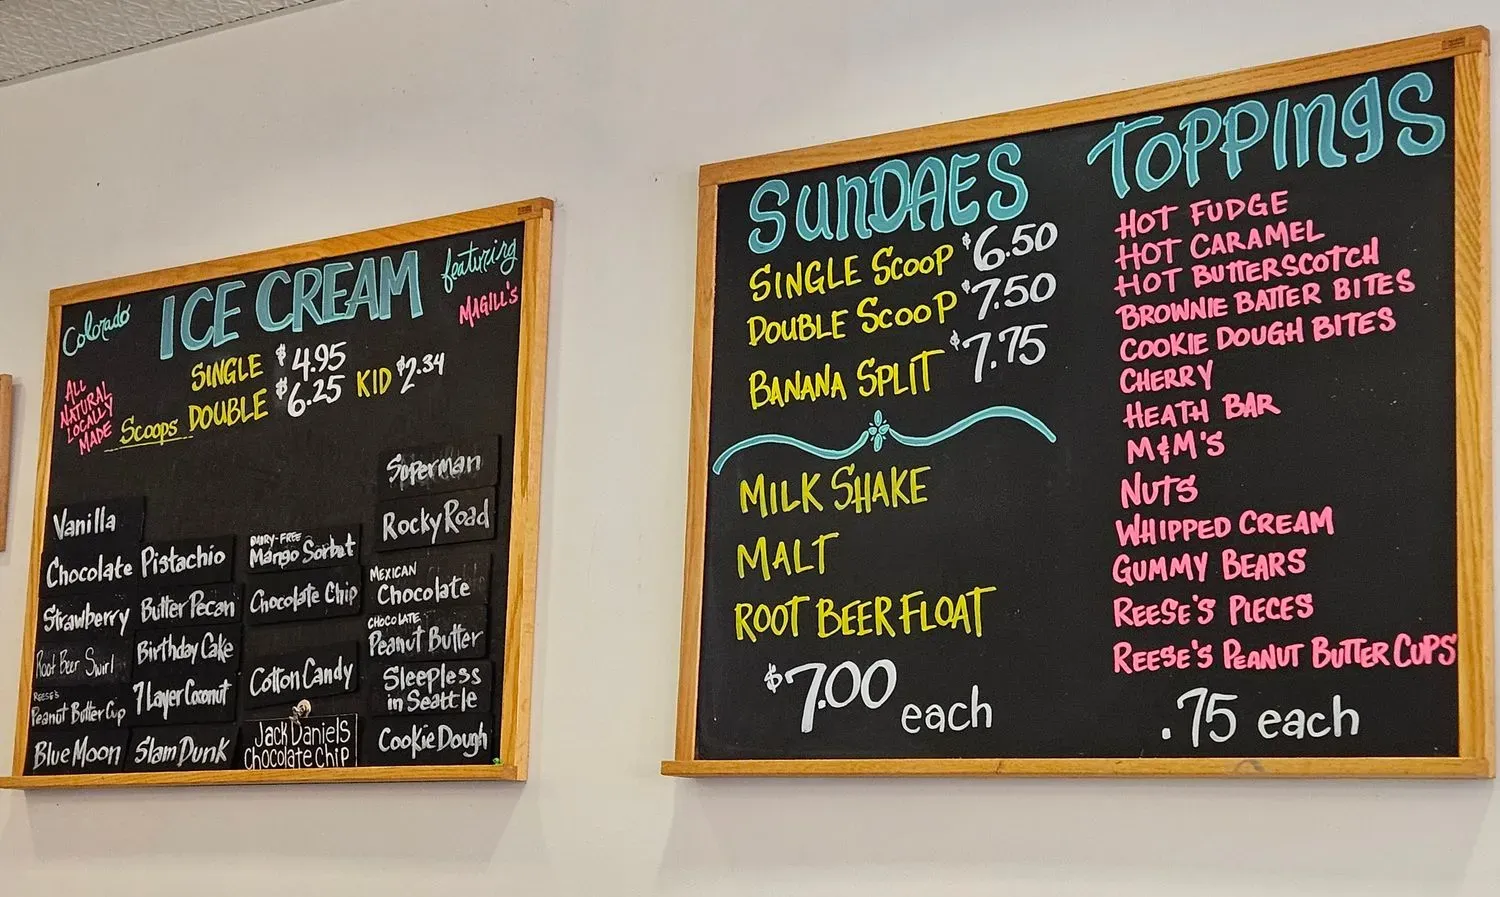 Colorado
ICE CREAM
featuring
MAGILL'S
ALL
NATURAL
LOCALLY
MADE
SINGLE $4.95
Scoops DOUBLE $6.25 KID $2.34
Vanilla
Chocolate
Strawberry
Root Beer Swirl
REESE'S
Peanut Butter Cup
Blue Moon
Pistachio
Butter Pecan
Birthday Cake
7 Layer Coconut
Slam Dunk
DAIRY-FREE
Mango Sorbet
Chocolate Chip
Cotton Candy
Jack Daniels
Chocolate Chip
Superman
Rocky Road
MEXICAN
Chocolate
CHOCOLATE
Peanut Butter
Sleepless
in Seattle
Cookie Dough
SUNDAES
SINGLE SCOOP $6.50
DOUBLE SCOOP $7.50
BANANA SPLIT $7.75
MILK SHAKE
MALT
ROOT BEER FLOAT
$7.00 each
TOPPINGS
HOT FUDGE
HOT CARAMEL
HOT BUTTERSCOTCH
BROWNIE BATTER BITES
COOKIE DOUGH BITES
CHERRY
HEATH BAR
M&M'S
NUTS
WHIPPED CREAM
GUMMY BEARS
REESE'S PIECES
REESE'S PEANUT BUTTER CUPS
.75 each